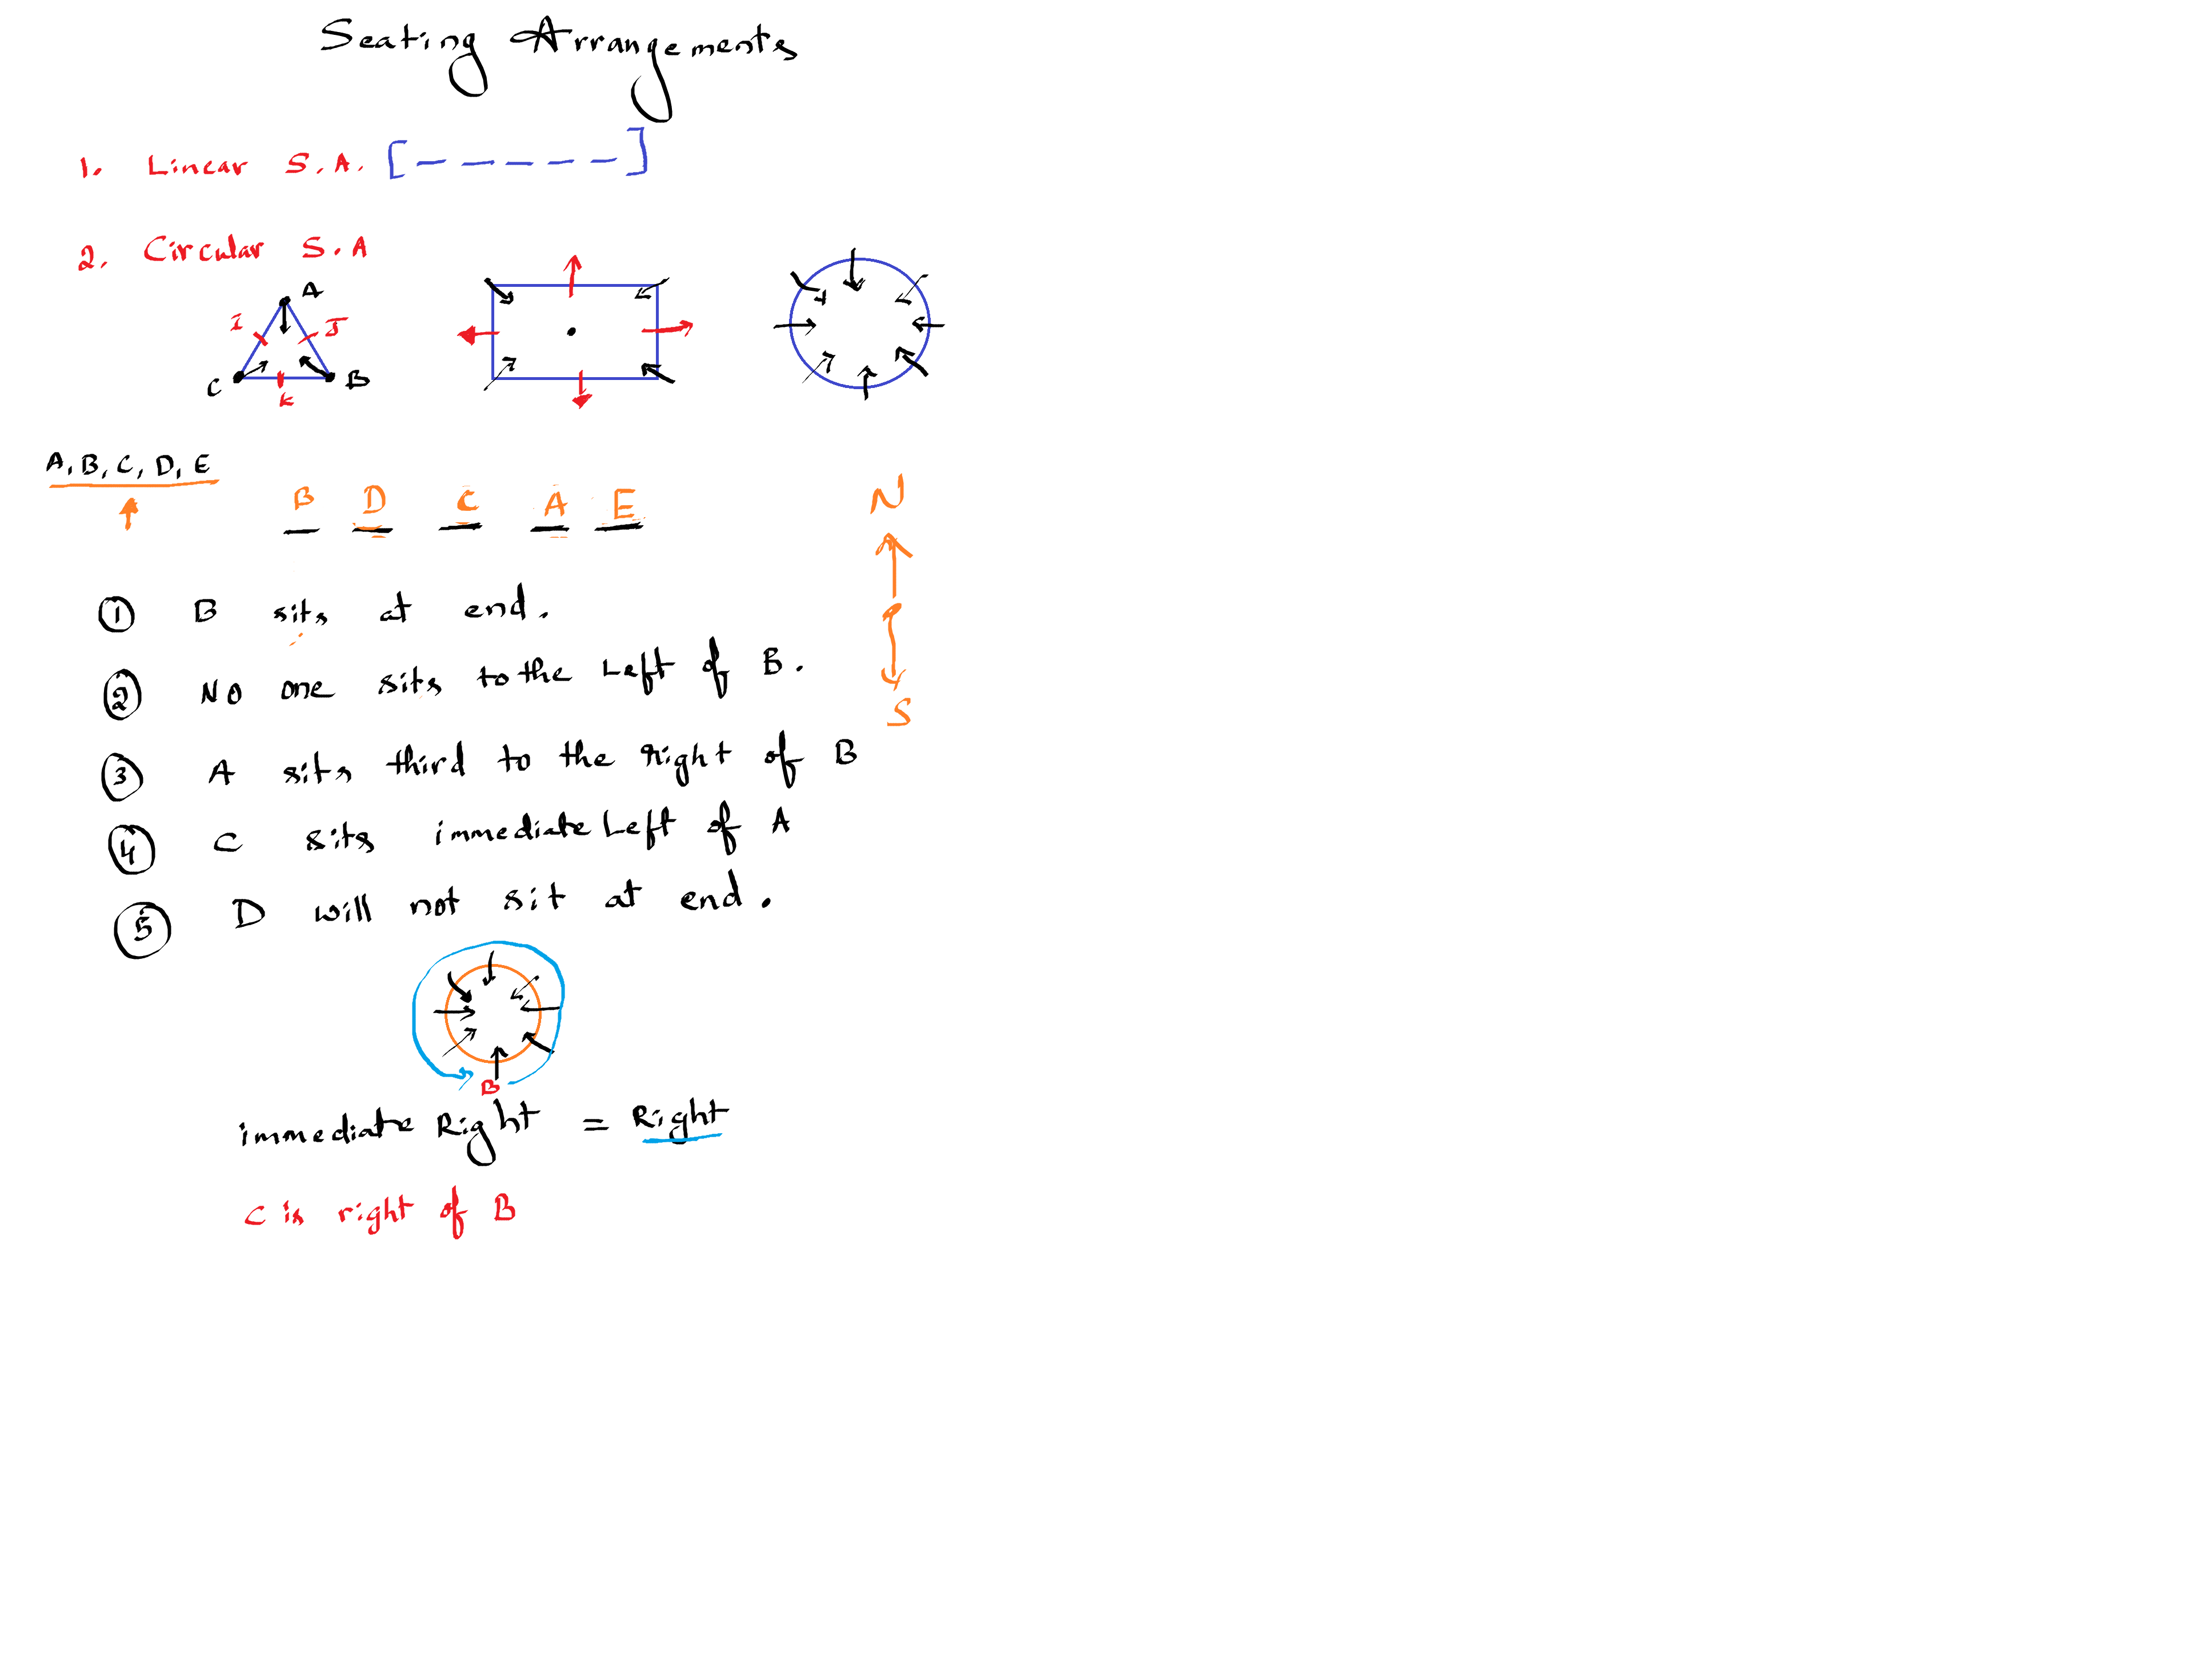 Seating Arrangements
1. Linear S.A. [- - - - -]
2. Circular S.A
A
I J
C B
K
A, B, C, D, E
B D C A E
N
S
① B sits at end.
② No one sits to the Left of B.
③ A sits third to the Right of B
④ C sits immediate Left of A
⑤ D will not sit at end.
B
immediate Right = Right
C is right of B